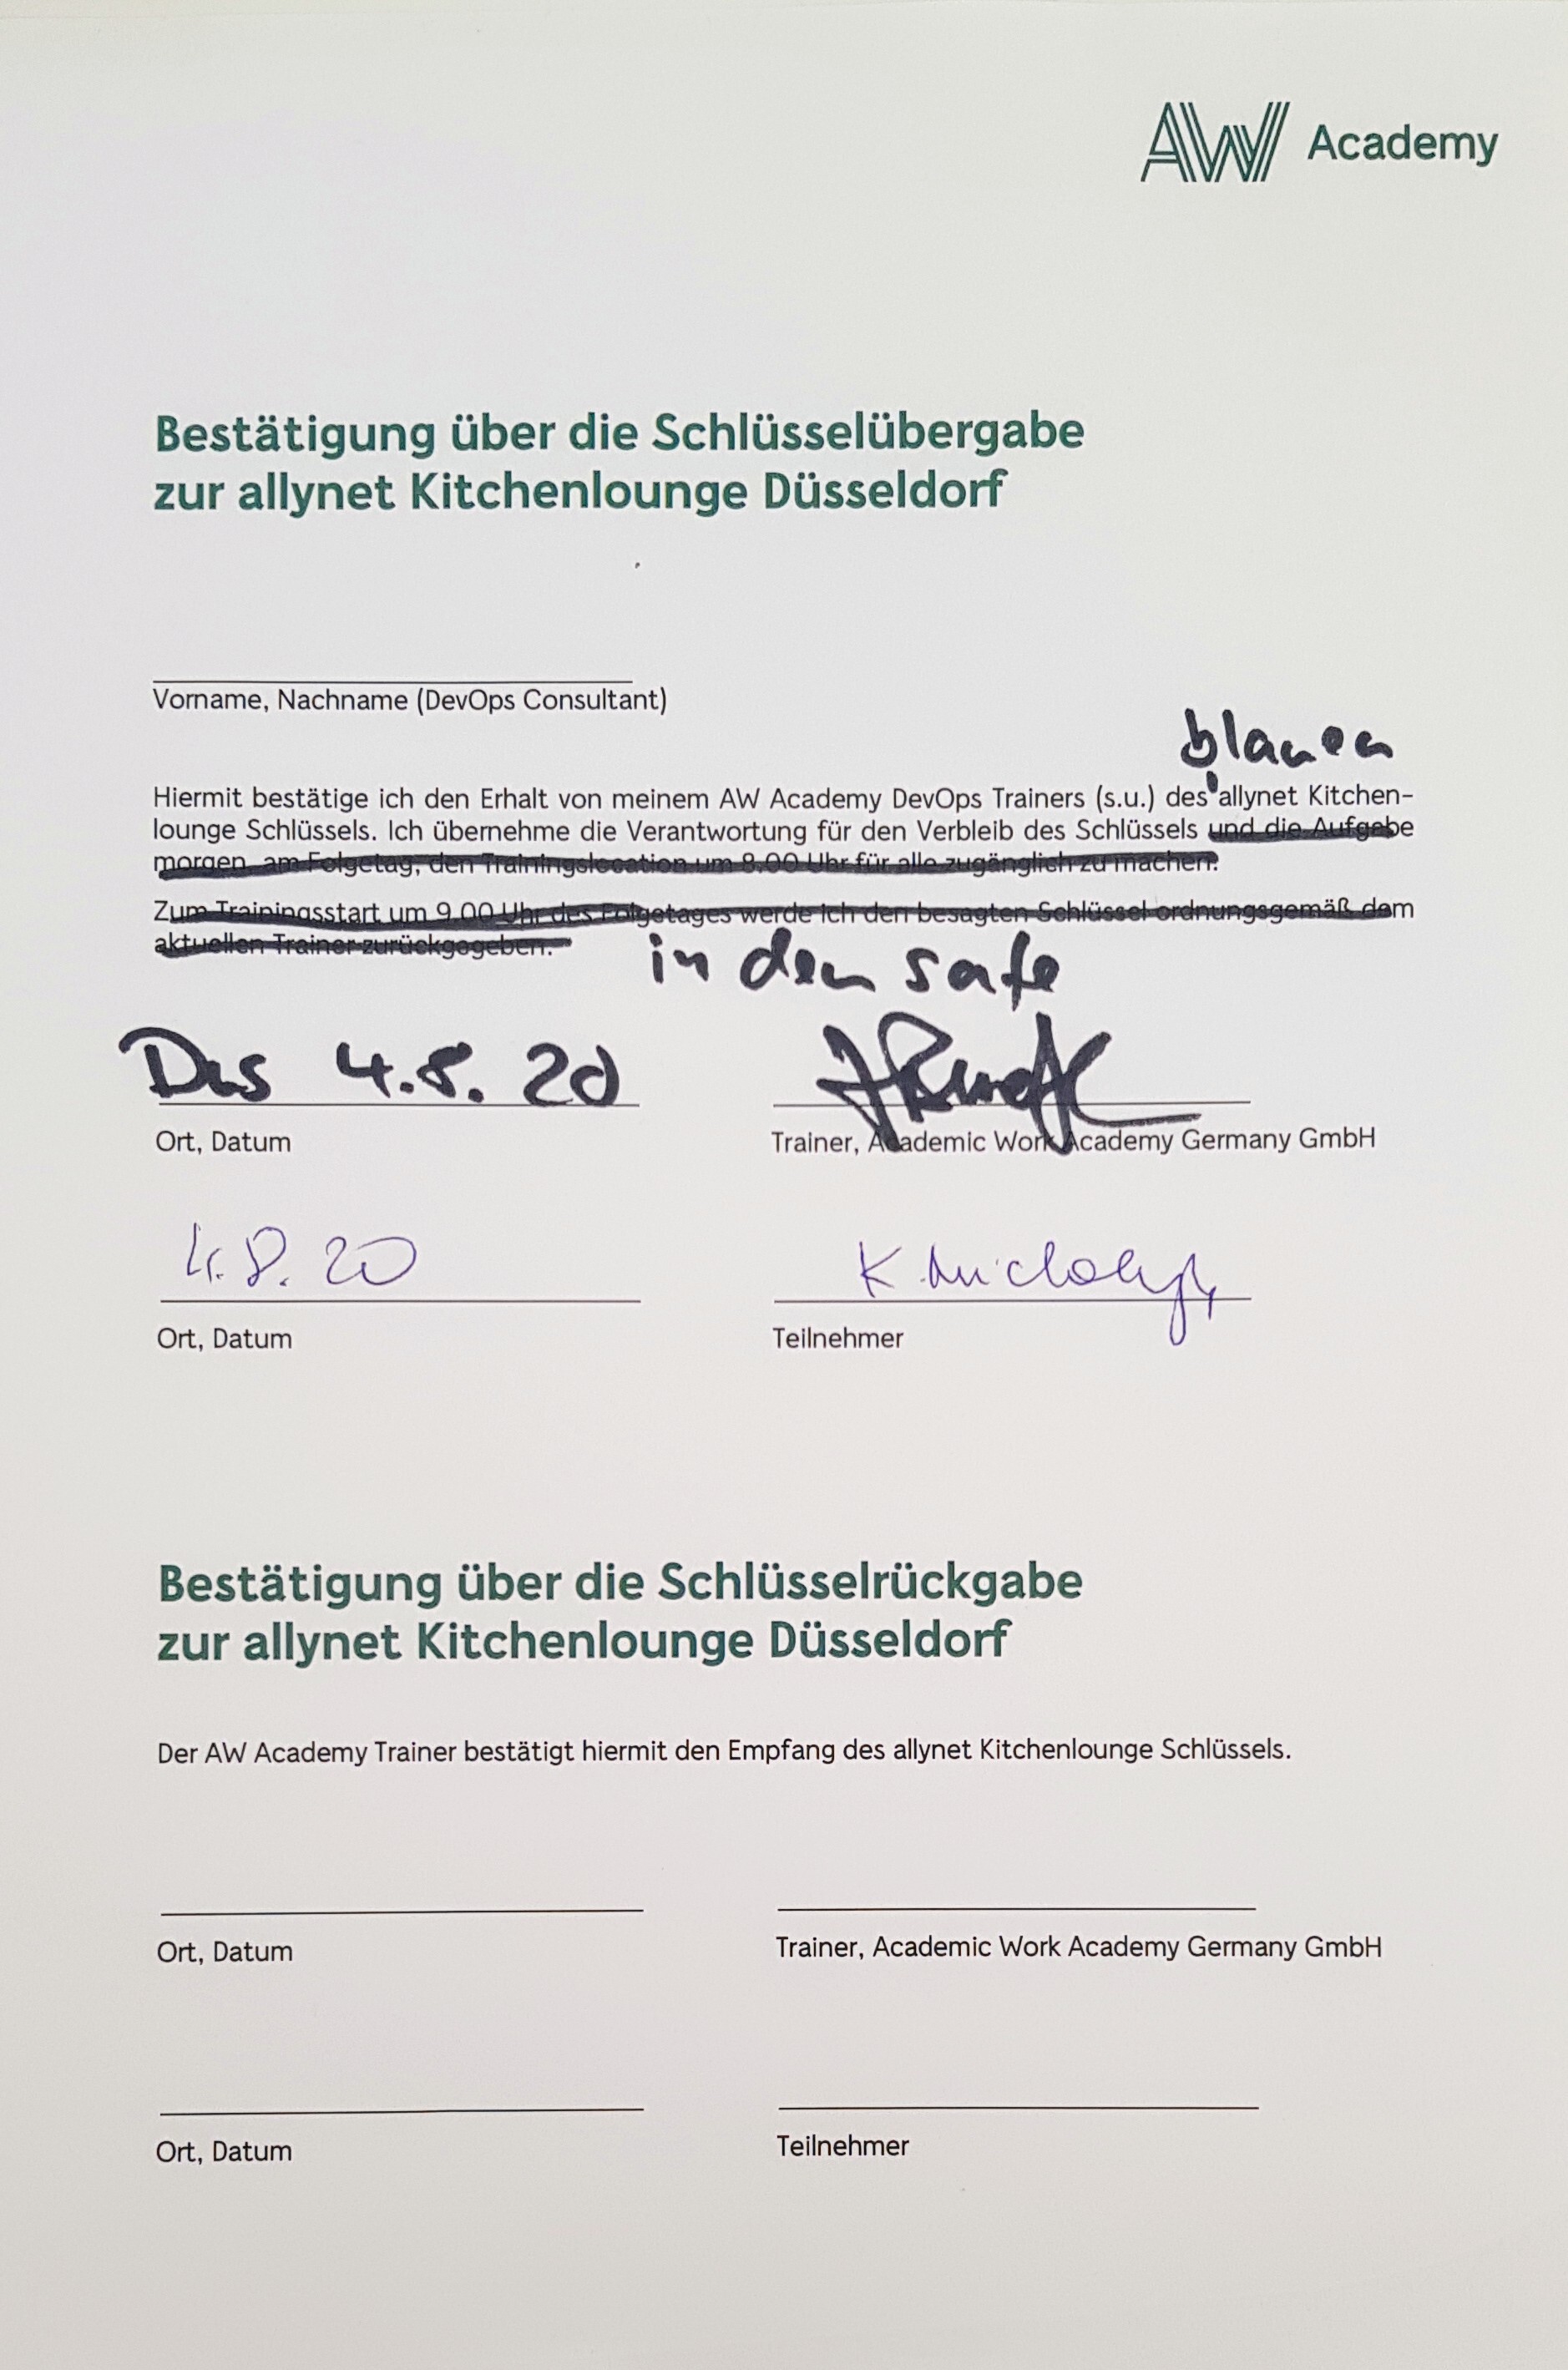 AW Academy
Bestätigung über die Schlüsselübergabe
zur allynet Kitchenlounge Düsseldorf
Vorname, Nachname (DevOps Consultant)
blauen
Hiermit bestätige ich den Erhalt von meinem AW Academy DevOps Trainers (s.u.) des allynet Kitchen-
lounge Schlüssels. Ich übernehme die Verantwortung für den Verbleib des Schlüssels und die Aufgabe
morgen, am Folgetag, den Trainingslocation um 8.00 Uhr für alle zugänglich zu machen.
Zum Trainingsstart um 9.00 Uhr des Folgetages werde ich den besagten Schlüssel ordnungsgemäß dem
aktuellen Trainer zurückgegeben.
in den safe
Dus 4.8.20
Ort, Datum
Trainer, Academic Work Academy Germany GmbH
4.8.20
K
Ort, Datum
Teilnehmer
Bestätigung über die Schlüsselrückgabe
zur allynet Kitchenlounge Düsseldorf
Der AW Academy Trainer bestätigt hiermit den Empfang des allynet Kitchenlounge Schlüssels.
Ort, Datum
Trainer, Academic Work Academy Germany GmbH
Ort, Datum
Teilnehmer